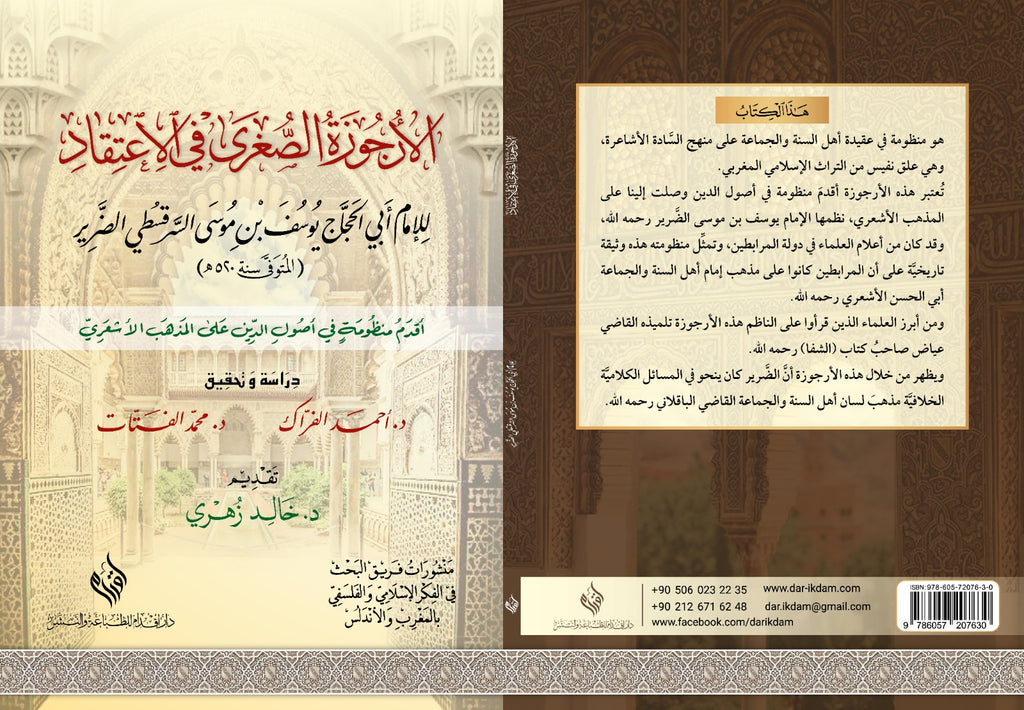 الأرجوزة الصغرى في الاعتقاد
للإمام أبي الحجاج يوسف بن موسى السرقسطي الضرير
(المتوفى سنة ٥٢٠ هـ)
أقدم منظومة في أصول الدين على المذهب الأشعري
دراسة وتحقيق
د. أحمد الفراك
د. محمد الفتات
تقديم
د. خالد زهري
منشورات فريق البحث
في الفكر الإسلامي والفلسفي
بالمغرب والأندلس
دار إقدام للطباعة والنشر
الأرجوزة الصغرى في الاعتقاد
هذا الكتاب
هو منظومة في عقيدة أهل السنة والجماعة على منهج السَّادة الأشاعرة،
وهي علق نفيس من التراث الإسلامي المغربي.
تُعتبر هذه الأرجوزة أقدمَ منظومة في أصول الدين وصلت إلينا على
المذهب الأشعري، نظمها الإمام يوسف بن موسى الضَّرير رحمه الله،
وقد كان من أعلام العلماء في دولة المرابطين، وتمثِّل منظومته هذه وثيقة
تاريخيَّة على أن المرابطين كانوا على مذهب إمام أهل السنة والجماعة
أبي الحسن الأشعري رحمه الله.
ومن أبرز العلماء الذين قرأوا على الناظم هذه الأرجوزة تلميذه القاضي
عياض صاحبُ كتاب (الشفا) رحمه الله.
ويظهر من خلال هذه الأرجوزة أنَّ الضَّرير كان ينحو في المسائل الكلاميَّة
الخلافيَّة مذهبَ لسان أهل السنة والجماعة القاضي الباقلاني رحمه الله.
دار إقدام للطباعة والنشر
+90 506 023 22 35 www.dar-ikdam.com
+90 212 671 62 48 dar.ikdam@gmail.com
www.facebook.com/darikdam
ISBN: 978-605-72076-3-0
9 786057 207630